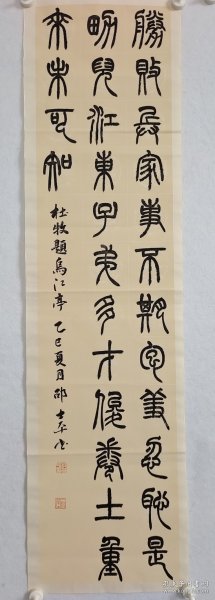 勝敗兵家事不期包羞忍恥是
男兒江東子弟多才俊卷土重
來未可知
杜牧題烏江亭 乙巳夏月 邵士平書